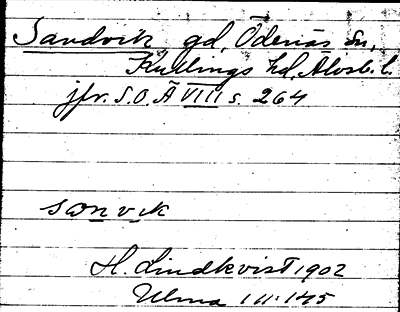 Sandvik gd, Ödenäs sn,
Kullings hd, Älvsb. l.
jfr. S.O.Ä VIII s. 264
sanvik
H. Lindkvist 1902
Ulma 111:145